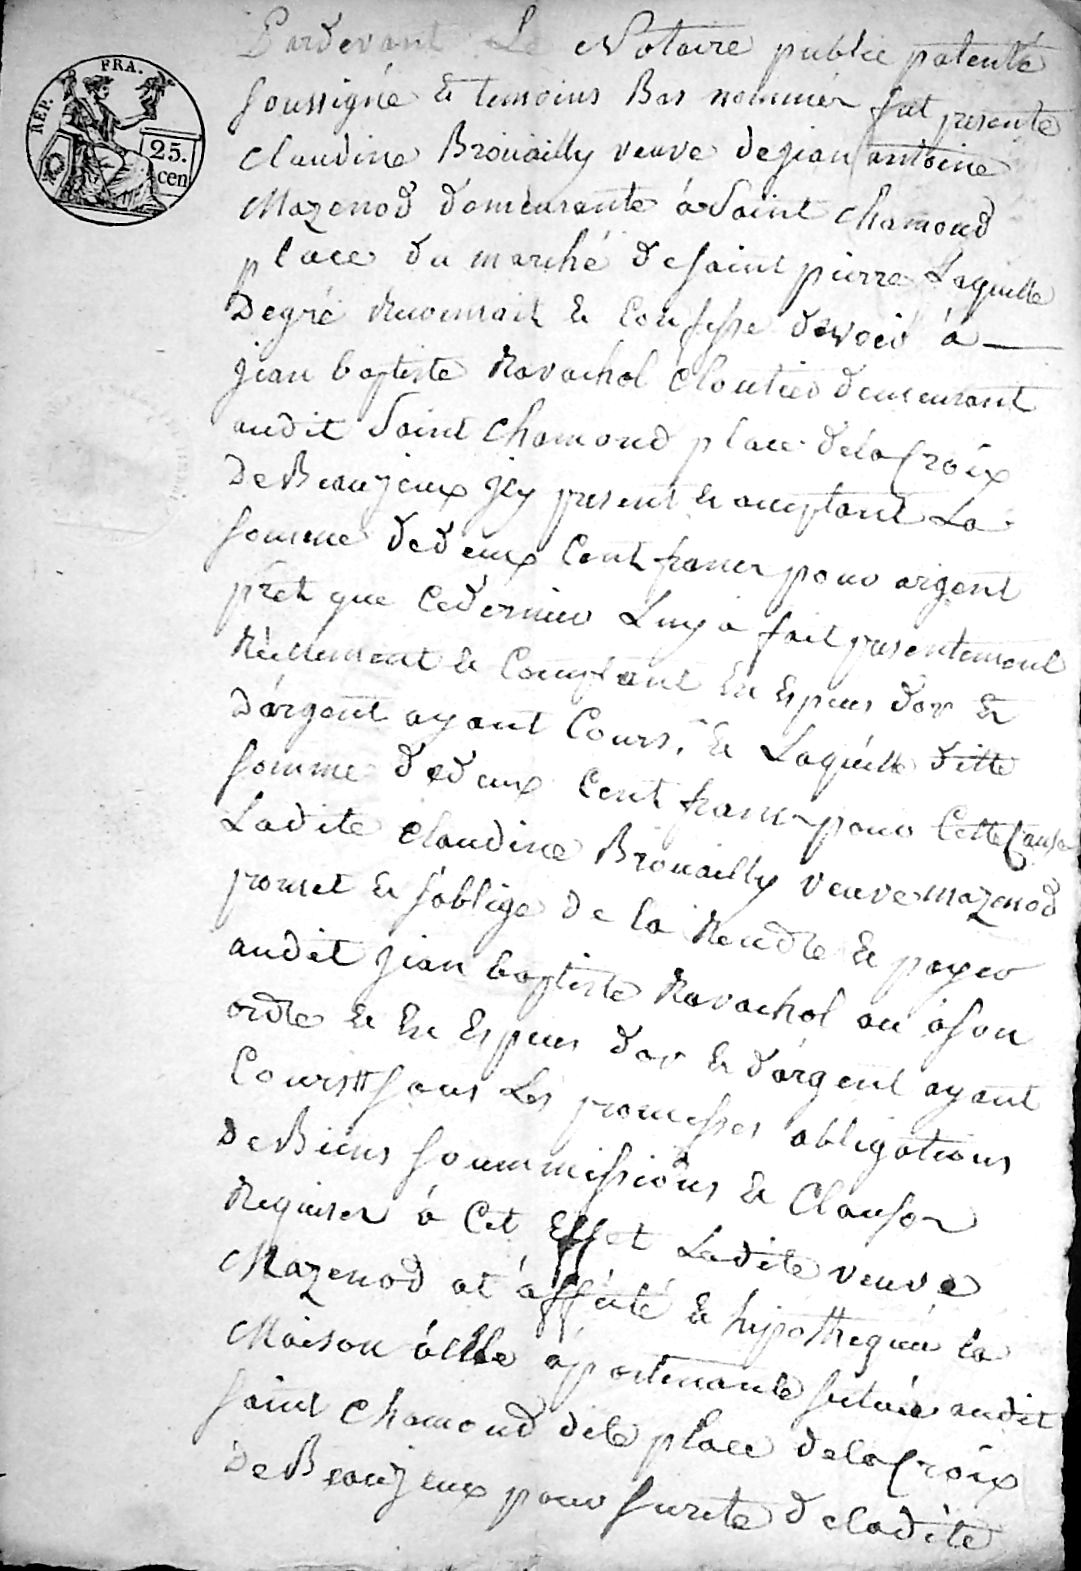 REP. FRA.
25.
cen
Pardevant Le Notaire public patenté
soussigné & temoins Bas nommér fut presente
claudine Brouailly veuve dejean antoine
Mazenod demeurante à Saint chamond
place du marché desaint pierre Laquelle
Degré & Confesse devoir à —
jean baptiste Ravachol cloutier demeurant
audit Saint chamond place delaCroix
DeBeaujeux jcy present & acceptant La
somme dedeux Cent francs pour argent
prêt que Cedernier Luy a fait presentement
Réellement & Comptant En Especes dor &
Dargent ayant Cours, & Laquelle ditte
somme dedeux Cent francs pour Cette Cause
Ladite claudine Brouailly veuve mazenod
promet & soblige de la Rendre & payer
audit jean baptiste Ravachol ou àson
ordre & En Especes dor & dargent ayant
Cours sous Les promesses obligations
deBiens soummissions & Clauses
Requises à Cet Effet Ladite veuve
Mazenod at affecté & hipothequée la
Maison àelle apartenante scituée audit
saint chamond dite place delaCroix
deBeaujeux pour surete deladite